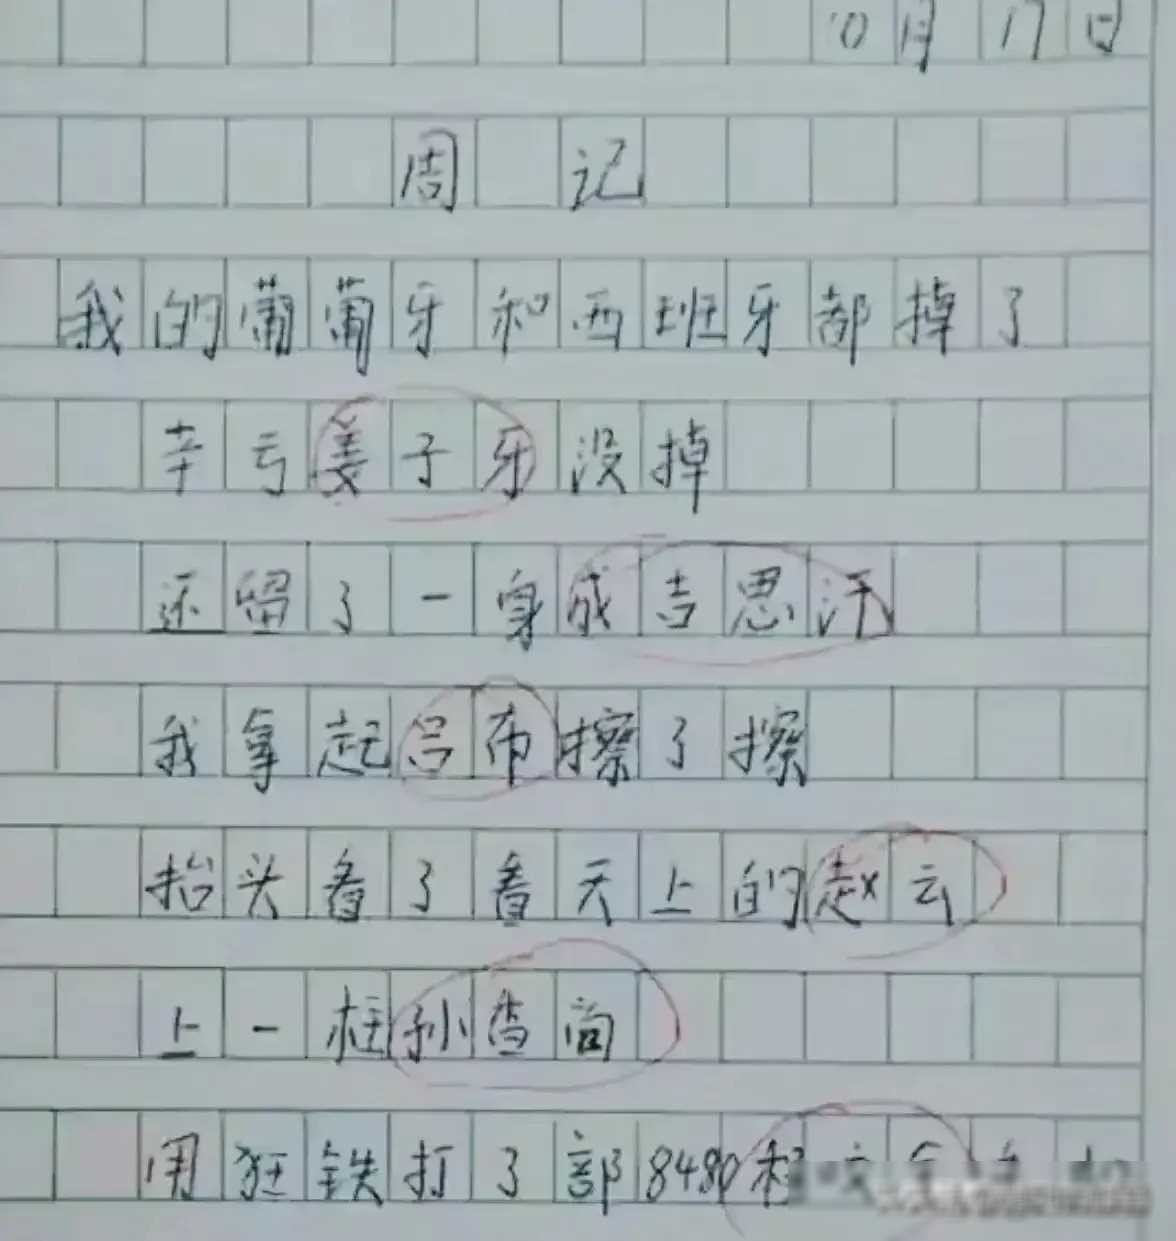 10月17日
周记
我的葡萄牙和西班牙都掉了
辛亏姜子牙没掉
还留了一身成吉思汗
我拿起吕布擦了擦
抬头看了看天上的赵云
上一柱孙尚
用狂铁打了部8480